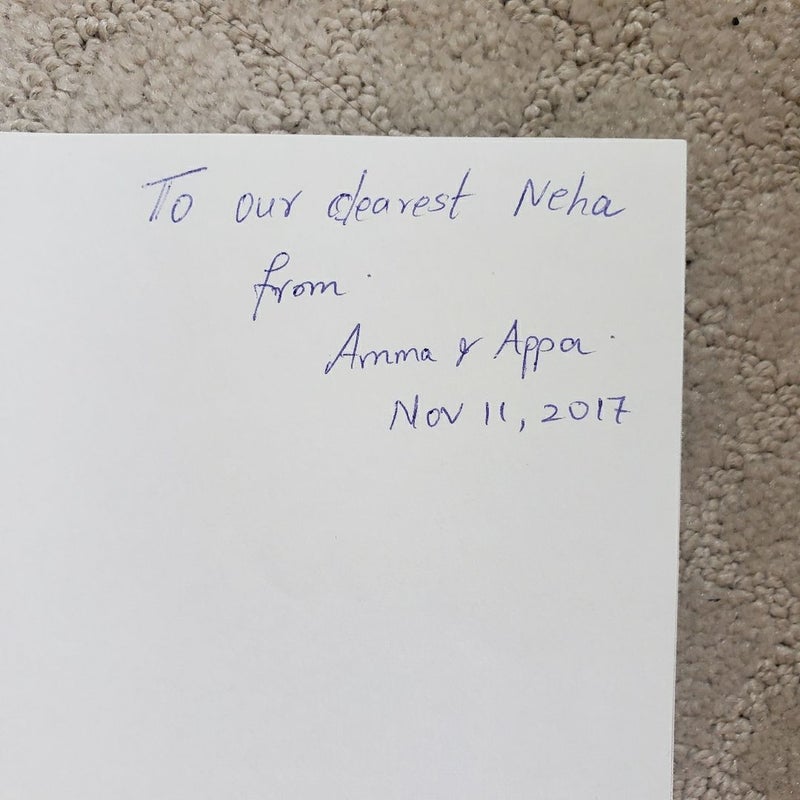 To our dearest Neha
from
Amma & Appa.
Nov 11, 2017